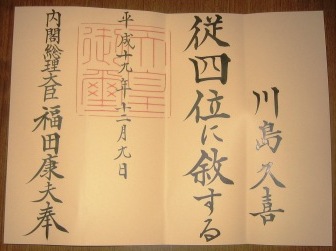 川島久喜
従四位に敘する
平成十九年十二月九日
天皇御璽
内閣総理大臣福田康夫奉